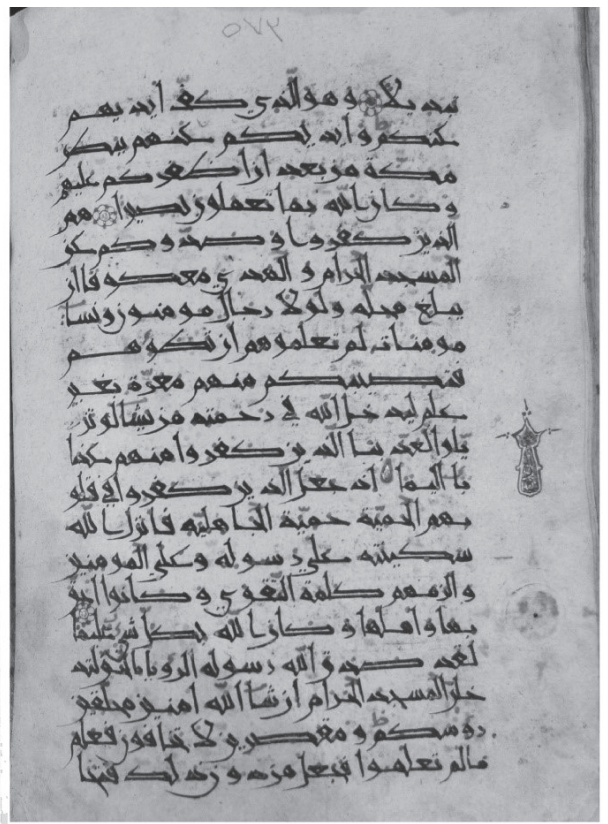 ٥٧٢
تبديلا وهو الذي كف أيديهم
عنكم وأيديكم عنهم ببطن
مكة من بعد أن أظفركم عليهم
وكان الله بما تعملون بصيرا هم
الذين كفروا وصدوكم عن
المسجد الحرام والهدي معكوفا أن
يبلغ محله ولولا رجال مومنون ونسا
مومنات لم تعلموهم أن تطوهم
فتصيبكم منهم معرة بغير
علم ليدخل الله في رحمته من يشا لو تز
يلوا لعذبنا الذين كفروا منهم عذا
با أليما إذ جعل الذين كفروا في قلو
بهم الحمية حمية الجاهلية فأنزل الله
سكينته على رسوله وعلى المومنين
وألزمهم كلمة التقوى وكانوا أحق
بها وأهلها وكان الله بكل شي عليما
لقد صدق الله رسوله الرويا بالحق لتد
خلن المسجد الحرام إن شا الله امنين محلقين
روسكم ومقصرين لا تخافون فعلم
ما لم تعلموا فجعل من دون ذلك فتحا